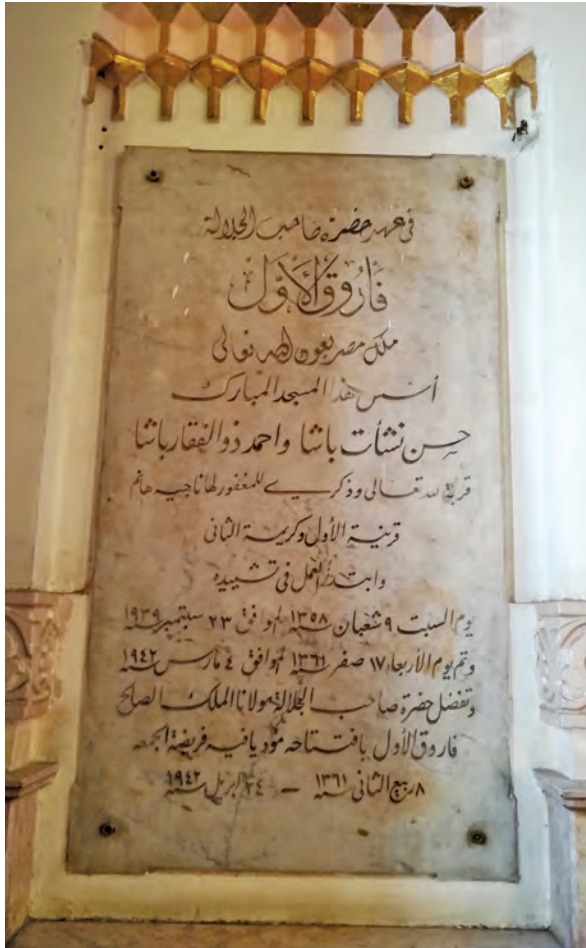 فى عهد حضرة صاحب الجلالة
فَارُوقُ الْأَوَّلْ
ملك مصر بعون الله تعالى
أسس هذا المسجد المبارك
حسن نشأت باشا واحمد ذو الفقار باشا
قربة لله تعالى وذكرى للمغفور لها ناجيه هانم
قرينة الأول وكريمة الثانى
وابتدئ العمل فى تشييده
يوم السبت ٩ شعبان سنة ١٣٥٨ الموافق ٢٣ سبتمبر سنة ١٩٣٩
وتم يوم الأربعاء ١٧ صفر سنة ١٣٦١ الموافق ٤ مارس سنة ١٩٤٢
وتفضل حضرة صاحب الجلالة مولانا الملك الصالح
فاروق الأول بافتتاحه مؤديا فيه فريضة الجمعه
٨ ربيع الثانى سنة ١٣٦١ - ٢٤ ابريل سنة ١٩٤٢